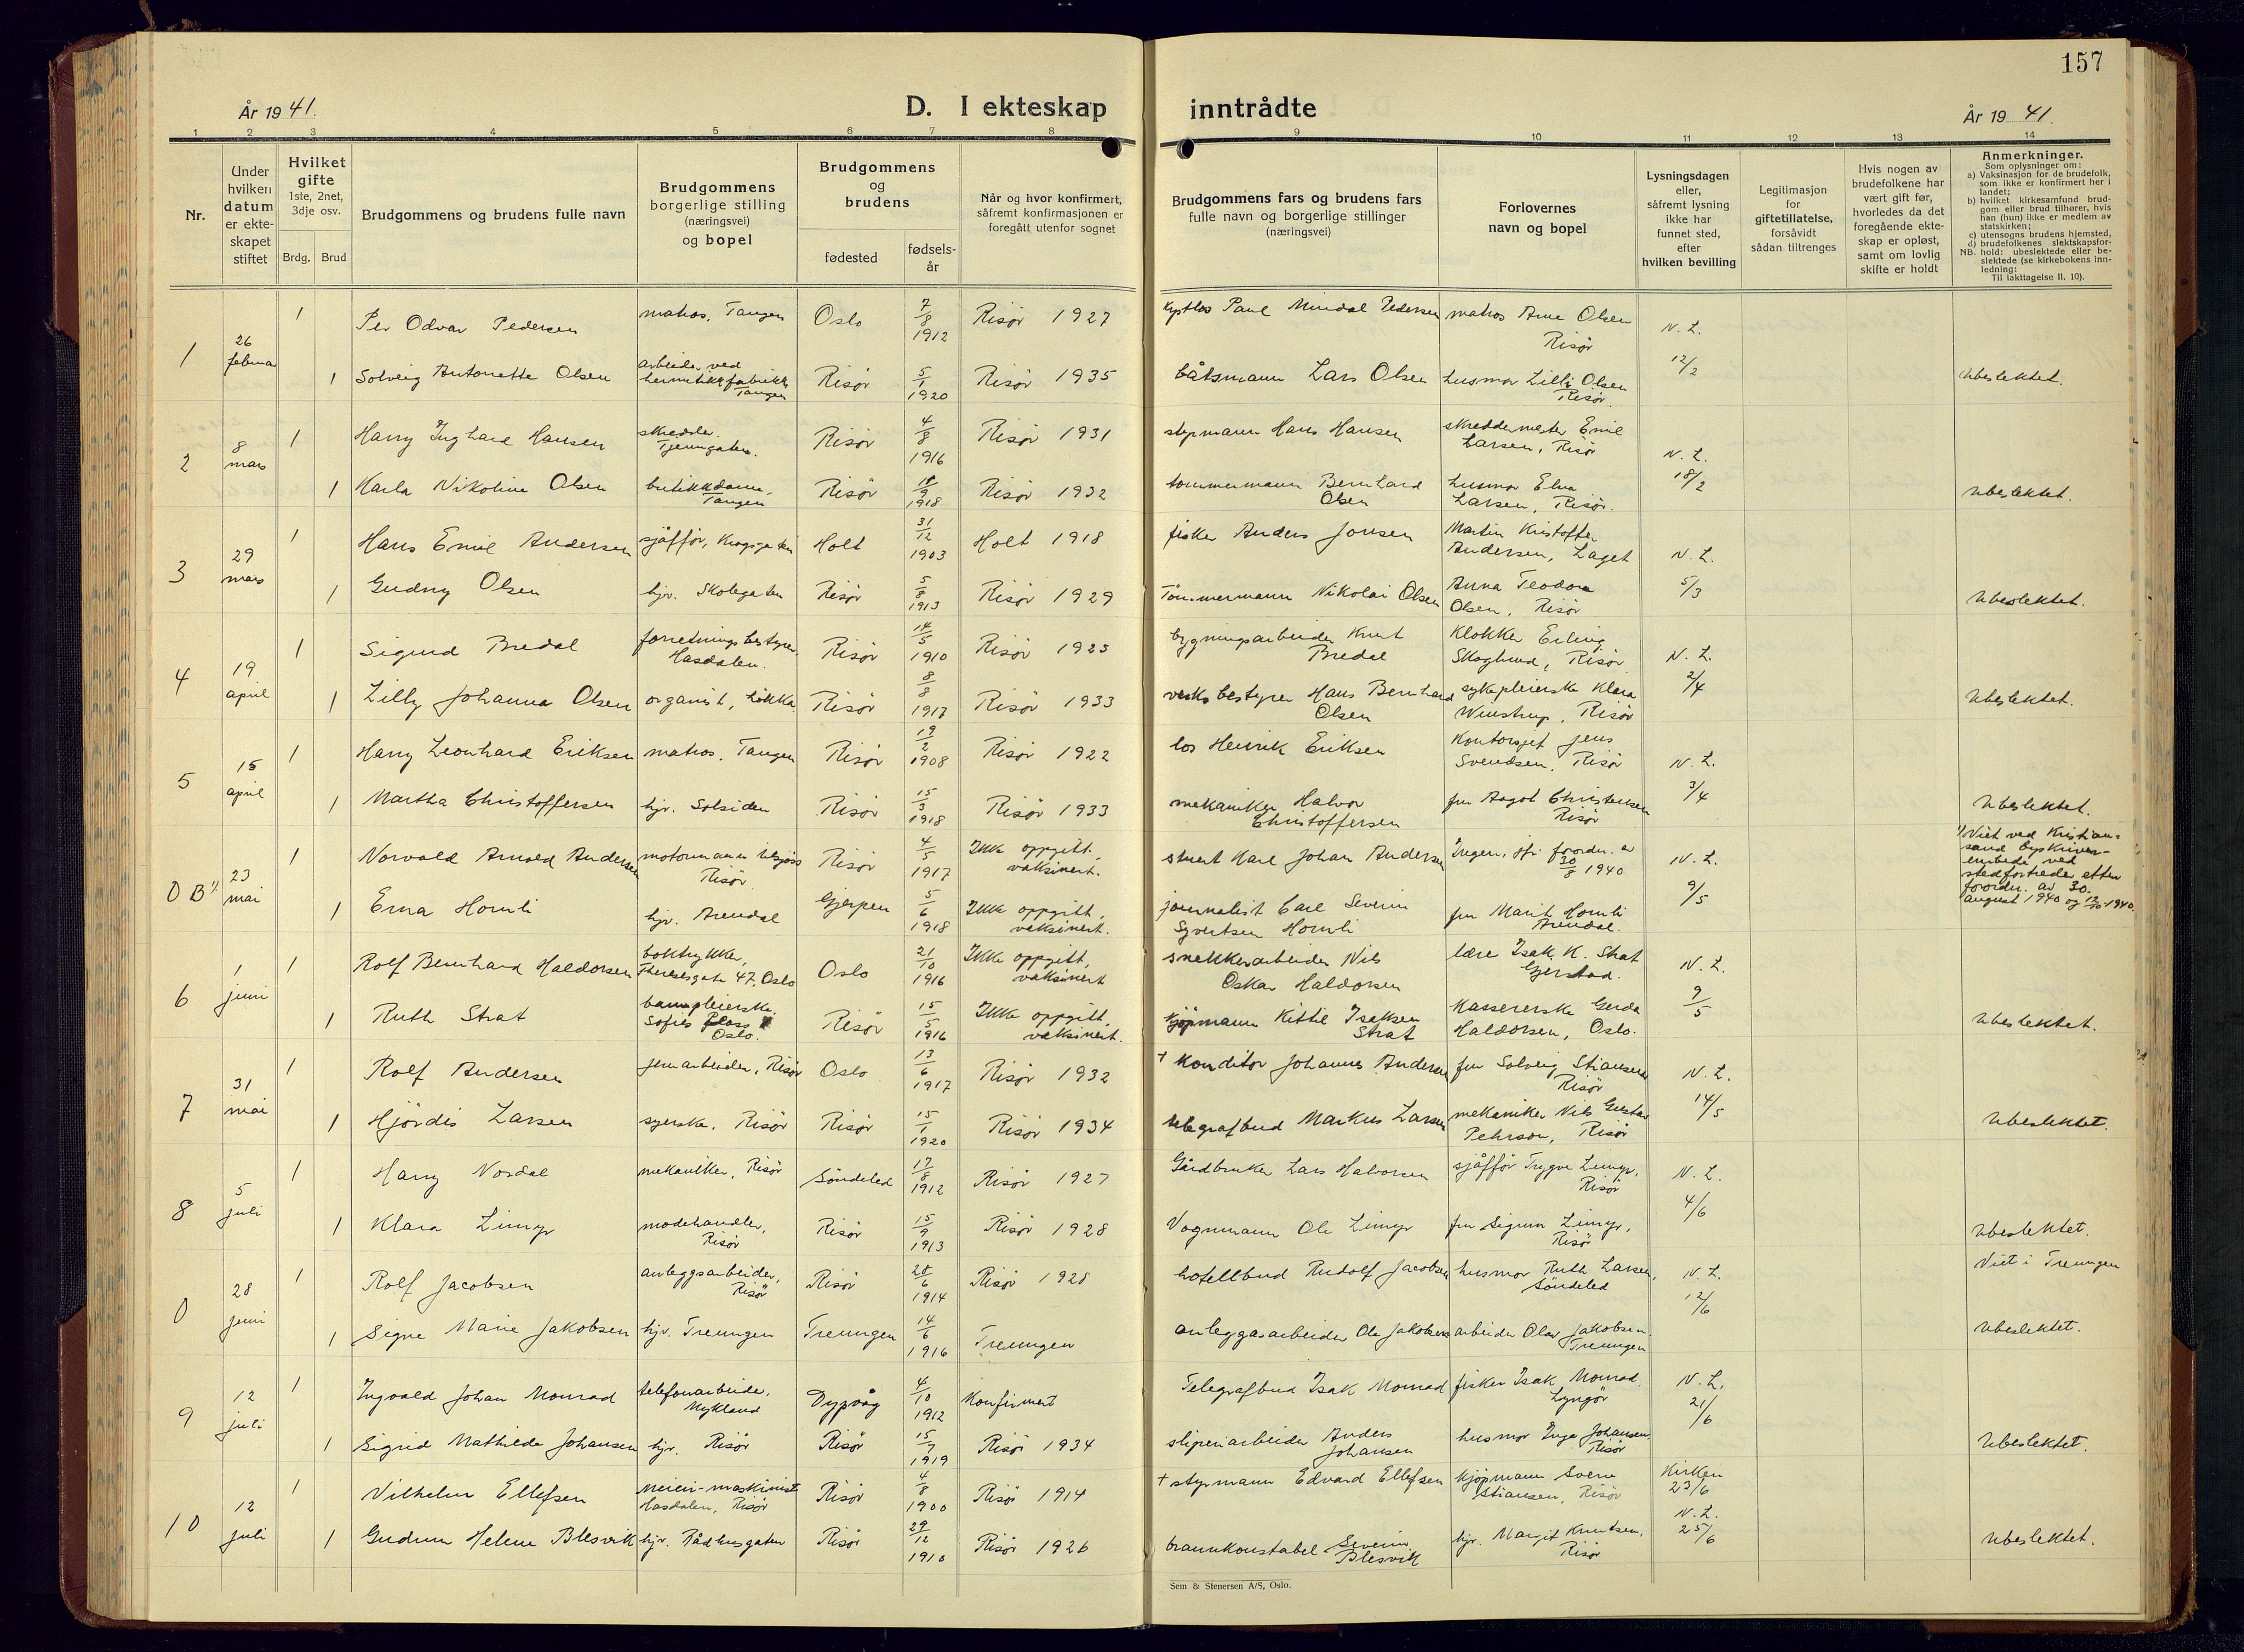 157
År 1941.
D. I ekteskap inntrådte
År 1941.
1 2 3 4 5 6 7 8 9 10 11 12 13 14
Nr.
Under hvilken datum er ekteskapet stiftet
Hvilket gifte 1ste, 2net, 3dje osv.
Brdg. Brud
Brudgommens og brudens fulle navn
Brudgommens borgerlige stilling (næringsvei) og bopel
Brudgommens og brudens
fødested
fødselsår
Når og hvor konfirmert, såfremt konfirmasjonen er foregått utenfor sognet
Brudgommens fars og brudens fars fulle navn og borgerlige stillinger (næringsvei)
Forlovernes navn og bopel
Lysningsdagen eller, såfremt lysning ikke har funnet sted, efter hvilken bevilling
Legitimasjon for giftetillatelse, forsåvidt sådan tiltrenges
Hvis nogen av brudefolkene har vært gift før, hvorledes da det foregående ekteskap er opløst, samt om lovlig skifte er holdt
Anmerkninger.
Som oplysninger om:
a) Vaksinasjon for de brudefolk, som ikke er konfirmert her i landet;
b) hvilket kirkesamfund brudgom eller brud tilhører, hvis han (hun) ikke er medlem av statskirken;
c) utensogns brudens hjemsted,
d) brudefolkenes slektskapsforhold: ubeslektede eller beslektede (se kirkebokens innledning:
NB. Til iakttagelse II. 10).
1 26 februar 1 Per Odvar Pedersen matros, Tangen Oslo 7/8 1912 Risør 1927 Paul Mindal Pedersen matros Arne Olsen Risør N. L. 12/2
1 Solveig Antonette Olsen arbeider ved hermetikkfabrikk Tangen Risør 5/1 1920 Risør 1935 båtsmann Lars Olsen husmor Lilli Olsen Risør. Ubeslektet.
2 8 mars 1 Harry Inghard Hansen skredder. Tjenngaten. Risør 4/8 1916 Risør 1931 styrmann Hans Hansen skreddermester Emil Larsen, Risør N. L. 18/2
1 Karla Nikoline Olsen butikkdame, Tangen Risør /9 1918 Risør 1932 tømmermann Bernhard Olsen husmor Elna Larsen, Risør. Ubeslektet.
3 29 mars 1 Hans Emil Andersen sjåffør, Kragsgaten Holt 31/12 1903 Holt 1918 fisker Anders Jonsen Martin Kristoffer Andersen, Laget N. L. 5/3
1 Gudny Olsen hjv. Skolegaten Risør 5/8 1913 Risør 1929 Tømmermann Nikolai Olsen Anna Teodora Olsen, Risør Ubeslektet.
4 19 april 1 Sigurd Bredal forretningsbestyrer Hasdalen. Risør 14/5 1910 Risør 1925 bygningsarbeider Knut Bredal Klokker Erling Skoglund, Risør N. L. 2/4
1 Lilly Johanna Olsen organist, Løkka Risør 8/8 1917 Risør 1933 verksbestyrer Hans Bernhard Olsen sykepleierske Klara Winstrup, Risør Ubeslektet.
5 15 april 1 Harry Leonhard Eriksen matros. Tangen Risør 19/2 1908 Risør 1922 los Henrik Eriksen Kontorsjef Jens Svendsen, Risør N. L. 3/4
1 Martha Christoffersen hjv. Solsiden Risør 15/3 1918 Risør 1933 mekaniker Halvor Christoffersen fru Aagot Christensen Risør Ubeslektet.
0 B 1) 23 mai 1 Norvald Arnold Andersen motormann Risør Risør 4/5 1917 Ikke oppgitt, vaksinert. stuert Karl Johan Andersen Ingen, jfr. forordn. av 30/8 1940 N. L. 9/5 1) Viet ved Kristiansand byskriverembede ved stedfortreder etter forordn. av 30. august 1940 og 12/10 1940.
1 Erna Hornli hjv. Arendal Gjerpen 5/6 1918 Ikke oppgitt, vaksinert. journalist Carl Severin Syvertsen Hornli fru Marit Hornli Arendal.
6 1 juni 1 Rolf Bernhard Haldorsen boktrykker, Theresesgate 47, Oslo Oslo 21/10 1916 Ikke oppgitt, vaksinert snekkerarbeider Nils Oskar Haldorsen lærer Isak K. Strat Gjerstad. N. L. 9/5
1 Ruth Strat barnepleierske Sofies Plass Oslo. Risør 15/5 1916 Ikke oppgitt, vaksinert. Kjøpmann Kittil Isaksen Strat Kassererske Gerda Haldorsen, Oslo. Ubeslektet.
7 31 mai 1 Rolf Andersen jernarbeider, Risør Oslo 13/6 1917 Risør 1932 + Konditor Johannes Andersen fru Solveig Stiansen Risør N. L. 14/5
1 Hjördis Larsen syerske, Risør Risør 15/1 1920 Risør 1934 telegrafbud Markus Larsen mekaniker Nils Gustav Pehrson, Risør Ubeslektet.
8 5 juli 1 Harry Nordal mekaniker, Risør Søndeled 17/8 1912 Risør 1927 Gårdbruker Lars Halvorsen sjåffør Trygve Limyr, Risør N. L. 4/6
1 Klara Limyr motehandler, Risør Risør 15/9 1913 Risør 1928 Vognmann Ole Limyr fru Sigrun Limyr, Risør Ubeslektet.
0 28 juni 1 Rolf Jacobsen anleggsarbeider, Risør Risør 28/6 1914 Risør 1928 hotellbud Rudolf Jacobsen husmor Ruth Larsen, Søndeled N. L. 12/6 Viet i Treungen
1 Signe Marie Jakobsen hjv. Treungen Treungen 14/6 1916 Treungen anleggsarbeider Ole Jakobsen arbeider Olav Jakobsen. Treungen Ubeslektet.
9 12 juli 1 Ingvald Johan Monrad telefonarbeider, Mykland Dypvåg 4/10 1912 Konfirmert Telegrafbud Isak Monrad fisker Isak Monrad. Lyngør N. L. 21/6
1 Sigrid Mathilde Johansen hjv. Risør Risør 15/7 1919 Risør 1934 sliperiarbeider Anders Johansen husmor Inga Johansen, Risør Ubeslektet.
10 12 juli 1 Vilhelm Ellefsen Meieri-maskinist Hasdalen, Risør Risør 4/8 1900 Risør 1914 + styrmann Edvard Ellefsen kjøpmann Sverre Stiansen, Risør Kirken 23/6 N. L. 25/6
1 Gudrun Helene Blesvik hjv. Rådhusgaten Risør 29/12 1910 Risør 1926 brannkonstabel Severin Blesvik hjv. Margit Knutsen, Risør Ubeslektet.
Sem & Stenersen A/S, Oslo.